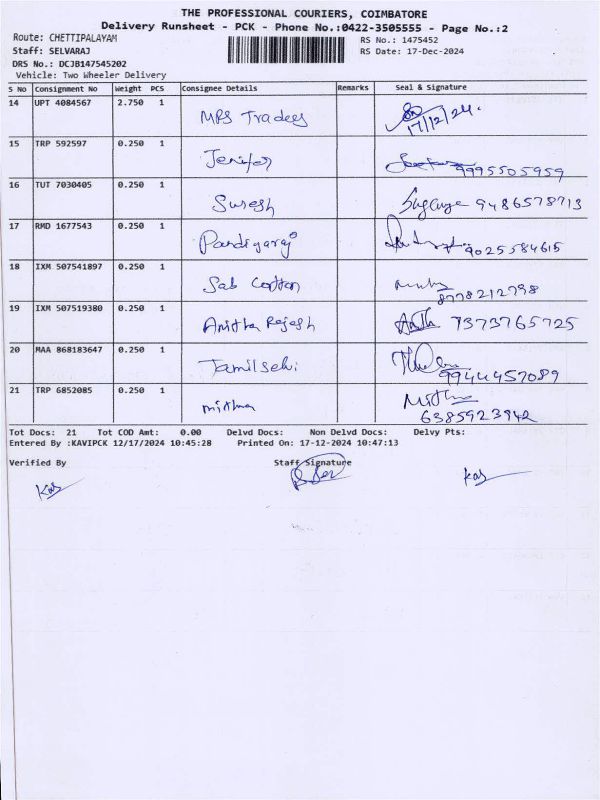 THE PROFESSIONAL COURIERS, COIMBATORE
Delivery Runsheet - PCK - Phone No.:0422-3505555 - Page No.:2
Route: CHETTIPALAYAM
RS No.: 1475452
Staff: SELVARAJ
RS Date: 17-Dec-2024
DRS No.: DCJB147545202
Vehicle: Two Wheeler Delivery
S No Consignment No Weight PCS Consignee Details Remarks Seal & Signature
14 UPT 4084567 2.750 1 MRS Traders 17/12/24.
15 TRP 592597 0.250 1 Jenifer 9995505959
16 TUT 7030405 0.250 1 Suresh 9486578713
17 RMD 1677543 0.250 1 Pandiyaraj 9025584615
18 IXM 507541897 0.250 1 Sab Cotton 8778212798
19 IXM 507519380 0.250 1 Anitha Rajesh 7373765725
20 MAA 868183647 0.250 1 Tamilselvi 9944457089
21 TRP 6852085 0.250 1 mithra 6385923942
Tot Docs: 21 Tot COD Amt: 0.00 Delvd Docs: Non Delvd Docs: Delvy Pts:
Entered By :KAVIPCK 12/17/2024 10:45:28 Printed On: 17-12-2024 10:47:13
Verified By Staff Signature